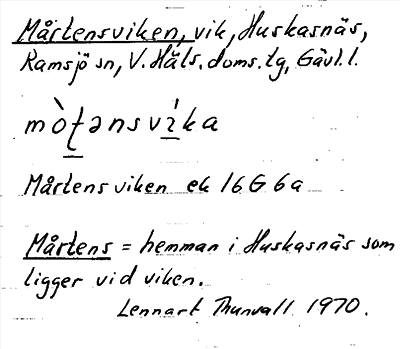 Mårtensviken, vik, Huskasnäs,
Ramsjö sn, V. Häls. doms. tg, Gävl. l.
mò̠ʈənsvì̠ka
Mårtensviken ek 16G 6a
Mårtens = hemman i Huskasnäs som
ligger vid viken.
Lennart Thunvall 1970.